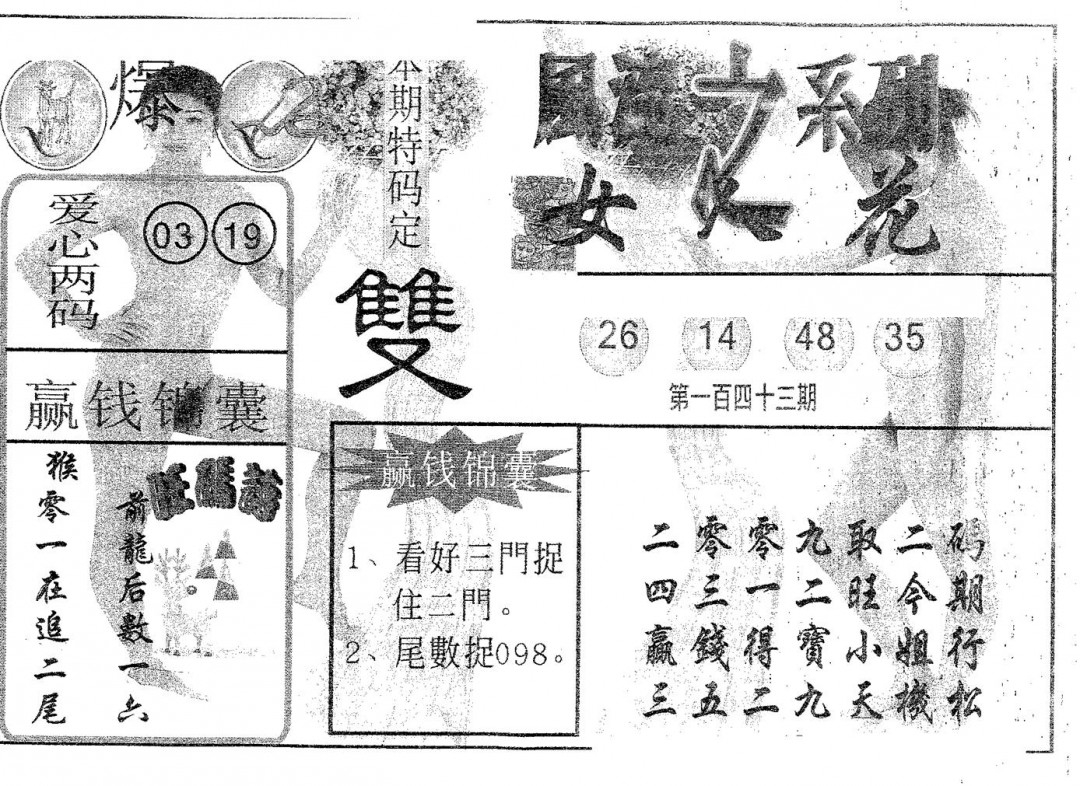 本期特码定
雙
系列
女 花
爱心两码
03 19
26 14 48 35
第一百四十三期
赢钱锦囊
前龍后數一六
猴零一在追二尾
赢钱锦囊
1、看好三門捉
住二門。
2、尾數捉098。
二零零九取二码
四三一二旺今期
赢錢得寶小姐行
三五二九天機松